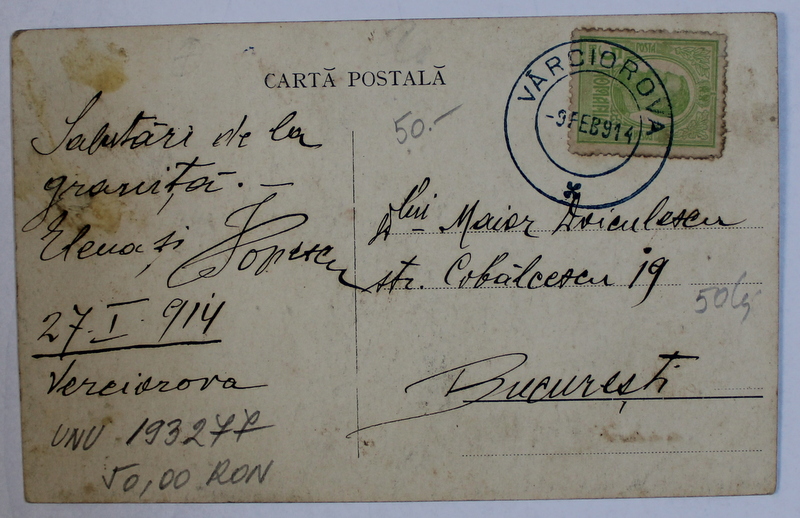 CARTĂ POSTALĂ
VÂRCIOROVA
-9FEB914
50.-
Salutări de la
graniţă. —
Elena şi Popescu
27.I.914
Verciorova
UNU 193277
50,00 RON
Dlui Maior Doiculescu
str. Cobălcescu 19
50 lei
Bucureşti